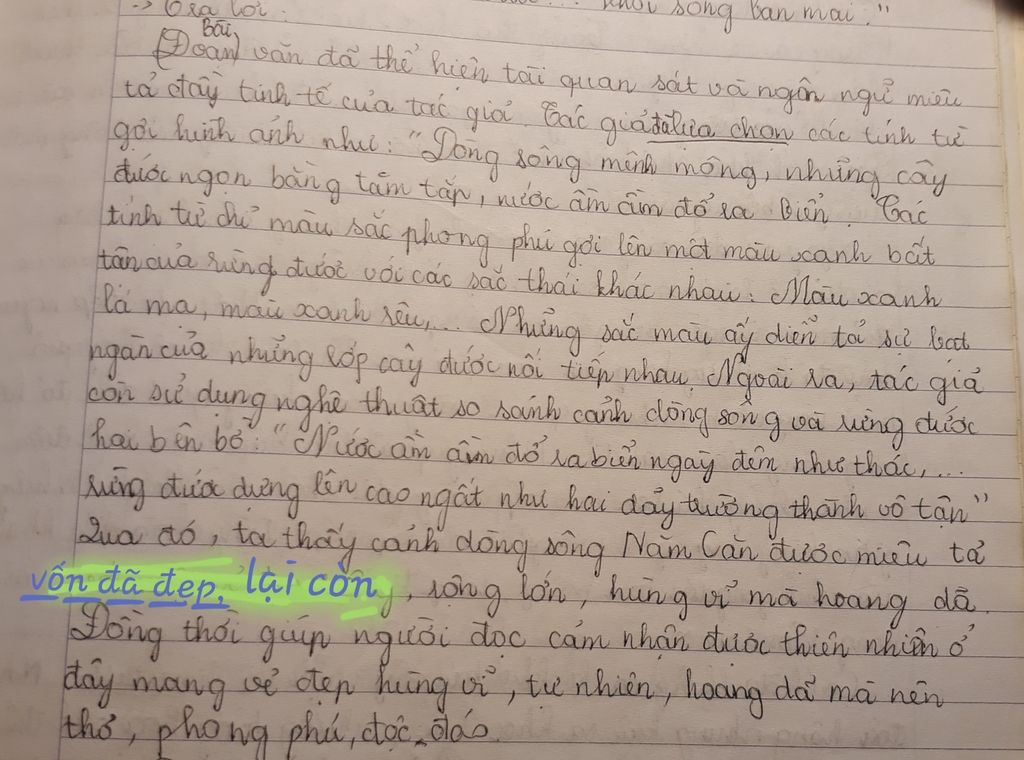 -> Trả lời:        khói sóng ban mai."
Bài
(Đoạn) văn đã thể hiện tài quan sát và ngôn ngữ miêu
tả đầy tinh tế của tác giả. Tác giả đã lựa chọn các tính từ
gợi hình ảnh như: "Dòng sông mênh mông, những cây
đước ngọn bằng tăm tắp, nước ầm ầm đổ ra biển. Các
tính từ chỉ màu sắc phong phú gợi lên một màu xanh bất
tận của rừng đước với các sắc thái khác nhau: Màu xanh
lá mạ, màu xanh rêu,... Những sắc màu ấy diễn tả sự bạt
ngàn của những lớp cây đước nối tiếp nhau. Ngoài ra, tác giả
còn sử dụng nghệ thuật so sánh cảnh dòng sông và rừng đước
hai bên bờ: "Nước ầm ầm đổ ra biển ngày đêm như thác,...
rừng đước dựng lên cao ngất như hai dãy trường thành vô tận"
Qua đó, ta thấy cảnh dòng sông Năm Căn được miêu tả
vốn đã đẹp, lại còn, rộng lớn, hùng vĩ mà hoang dã.
Đồng thời giúp người đọc cảm nhận được thiên nhiên ở
đây mang vẻ đẹp hùng vĩ, tự nhiên, hoang dã mà nên
thơ, phong phú, độc đáo.